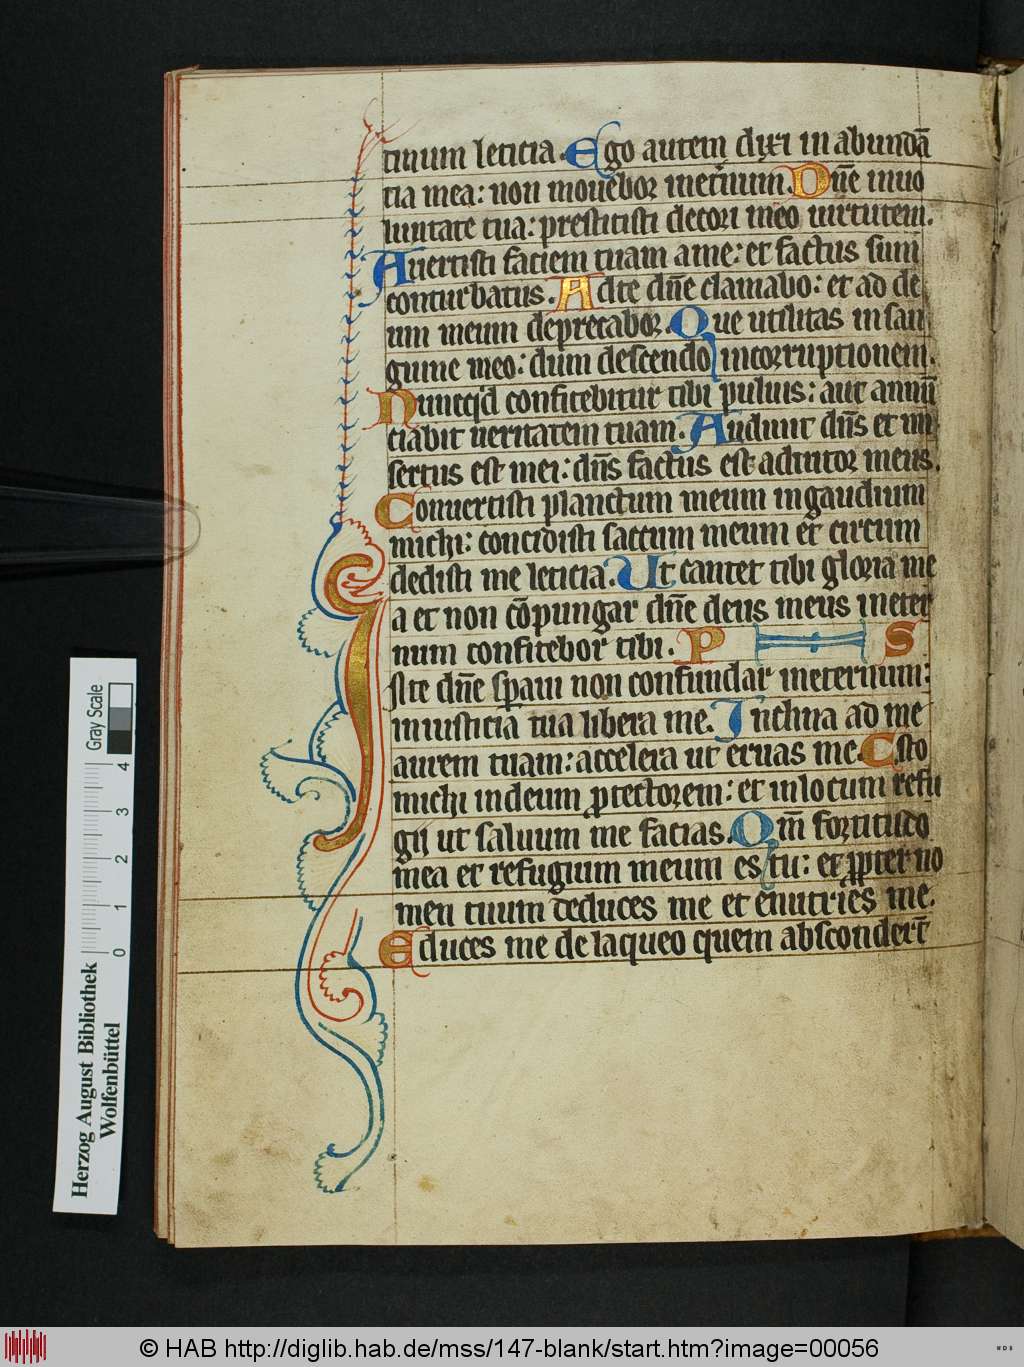 tinum leticia. Ego autem dixi in abundā
tia mea: non mouebor inet̄num. Dn̄e in uo
luntate tua: prestitisti decori meo uirtutem.
Auertisti faciem tuam a me: et factus sum
conturbatus. Ad te dn̄e clamabo: et ad de
um meum deprecabor. Que utilitas in san
guine meo: dum descendo in corruptionem.
Nunq'd confitebitur tibi puluis: aut annū
ciabit ueritatem tuam. Audiuit dn̄s et mi
sertus est mei: dn̄s factus est adiutor meus.
Conuertisti planctum meum in gaudium
michi: concidisti saccum meum et circum
dedisti me leticia. Ut cantet tibi gloria me
a et non cōpungar dn̄e deus meus in eter
num confitebor tibi. PS
In te dn̄e sp̄aui non confundar in eternum:
in iusticia tua libera me. Inclina ad me
aurem tuam: accelera ut eruas me. Esto
michi in deum p̄tectorem: et in locum refu
gij ut saluum me facias. Qm̄ fortitudo
mea et refugium meum es tu: et p̄pter no
men tuum deduces me et enutries me.
Educes me de laqueo quem absconder̄t
Herzog August Bibliothek
Wolfenbüttel
0 1 2 3 4
Gray Scale
© HAB http://diglib.hab.de/mss/147-blank/start.htm?image=00056